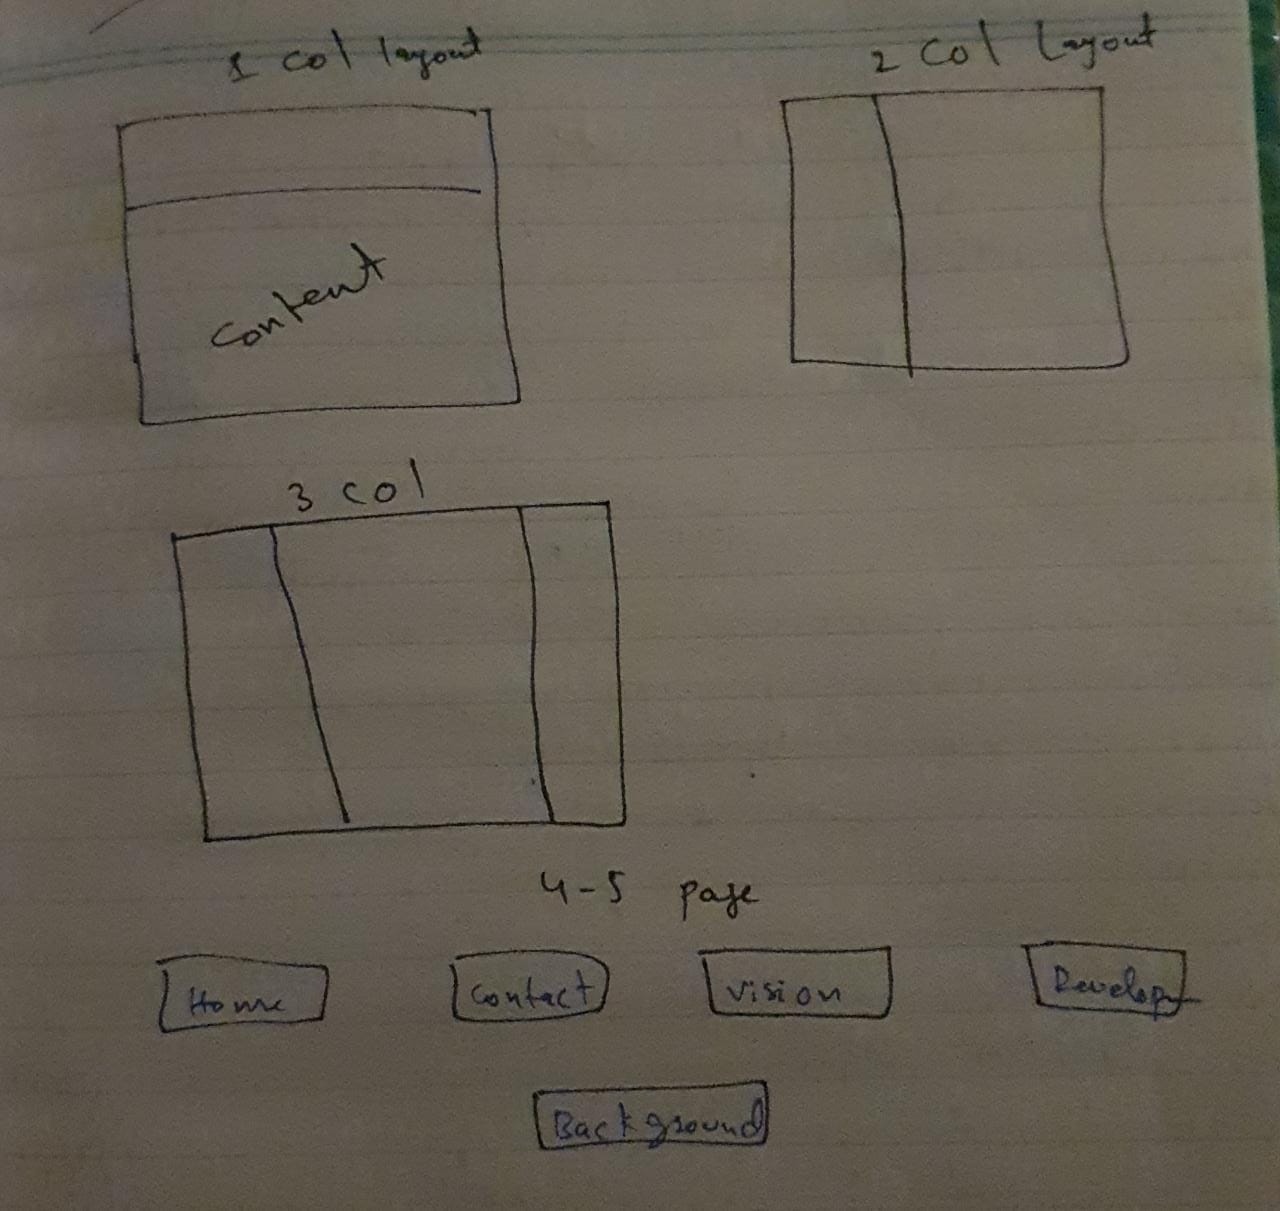 1 col layout
2 Col Layout
Content
3 col
4-5 page
Home
Contact
Vision
Develop
Background